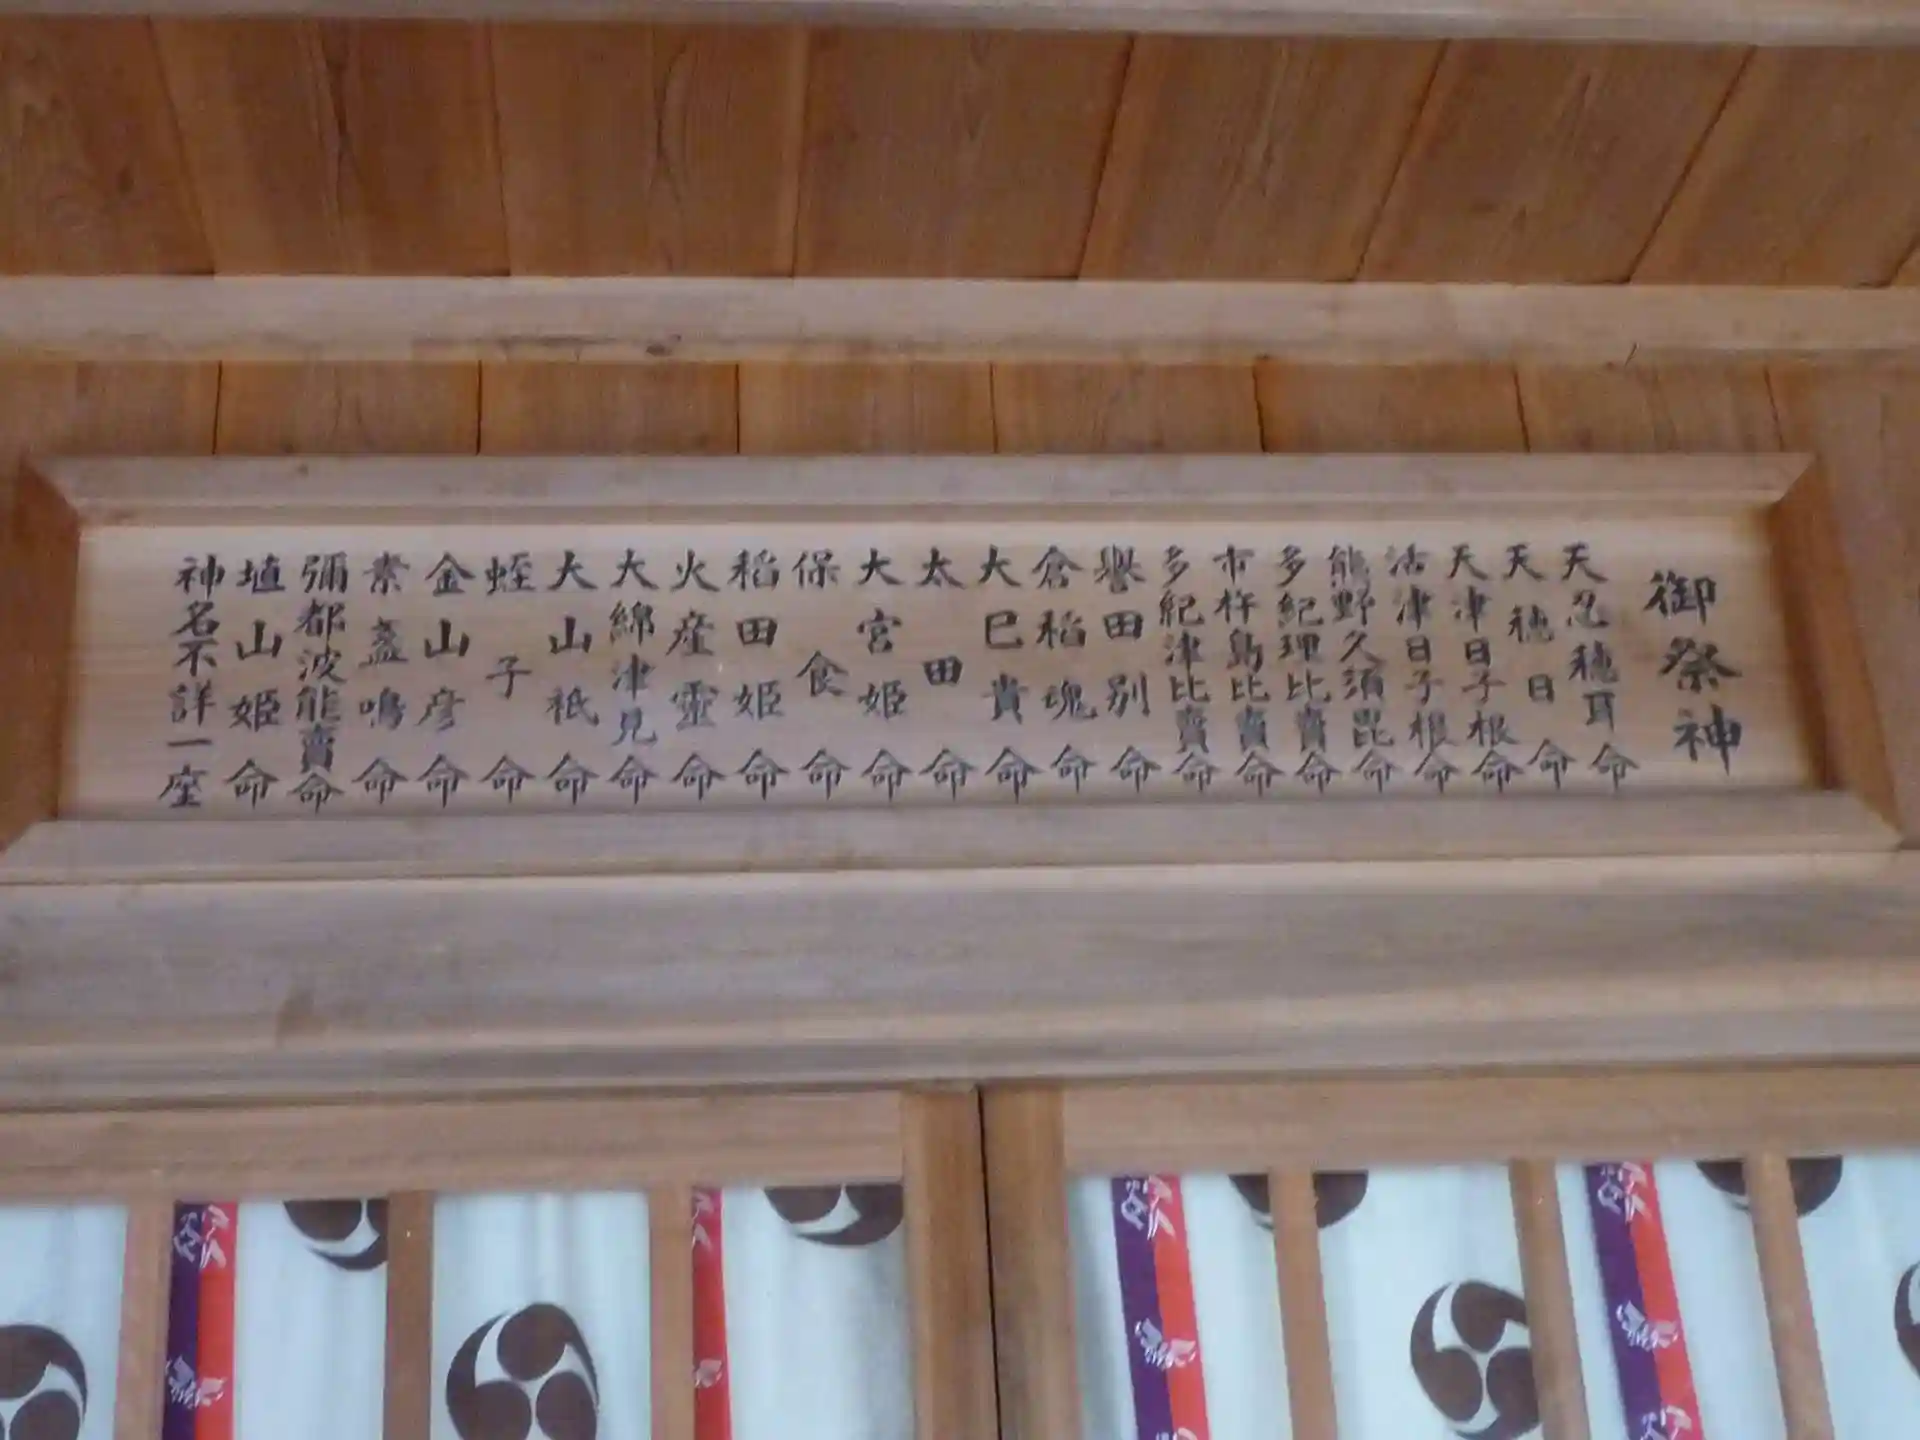 御祭神
天忍穂耳命
天穂日命
天津日子根命
活津日子根命
熊野久須毘命
多紀理比賣命
市杵島比賣命
多紀津比賣命
譽田別命
倉稻魂命
大巳貴命
太田命
大宮姫命
保食命
稻田姫命
火産靈命
大綿津見命
大山祇命
蛭子命
金山彦命
素盞鳴命
彌都波能賣命
埴山姫命
神名不詳一座